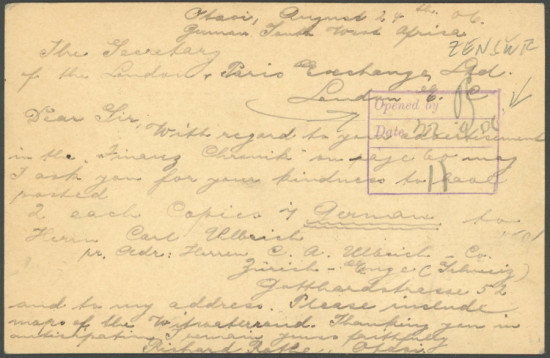 Otavi, August 24th 06.
German South West Africa
ZENSUR
The Secretary
of the London & Paris Exchange, Ltd.
London E. C.
Opened by
Dear Sir,
Date
With regard to your advertisement
in the "Finanz Chronik" on page 60 may
I ask you for your kindness to have
posted
2 each Copies of German to
Herrn Carl Ulbrich
pr. Adr: Herren C. A. Ulbrich & Co.
Zürich - Enge (Schweiz)
Gotthardstrasse 52
and to my address. Please include
maps of the Witwatersrand. Thanking you in
anticipation I remain yours faithfully
Richard Rothe, Otavi